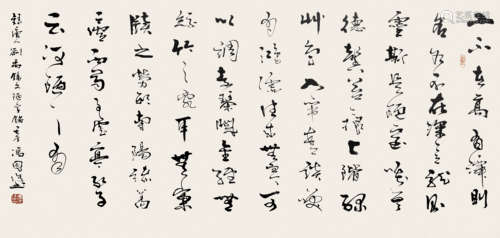 山不在高有仙则
名水不在深有龙则
灵斯是陋室唯吾
德馨苔痕上阶绿
草色入帘青谈笑
有鸿儒往来无白丁可
以调素琴阅金经无
丝竹之乱耳无案
牍之劳形南阳诸葛
庐西蜀子云亭孔子
云何陋之有
录唐刘禹锡文陋室铭